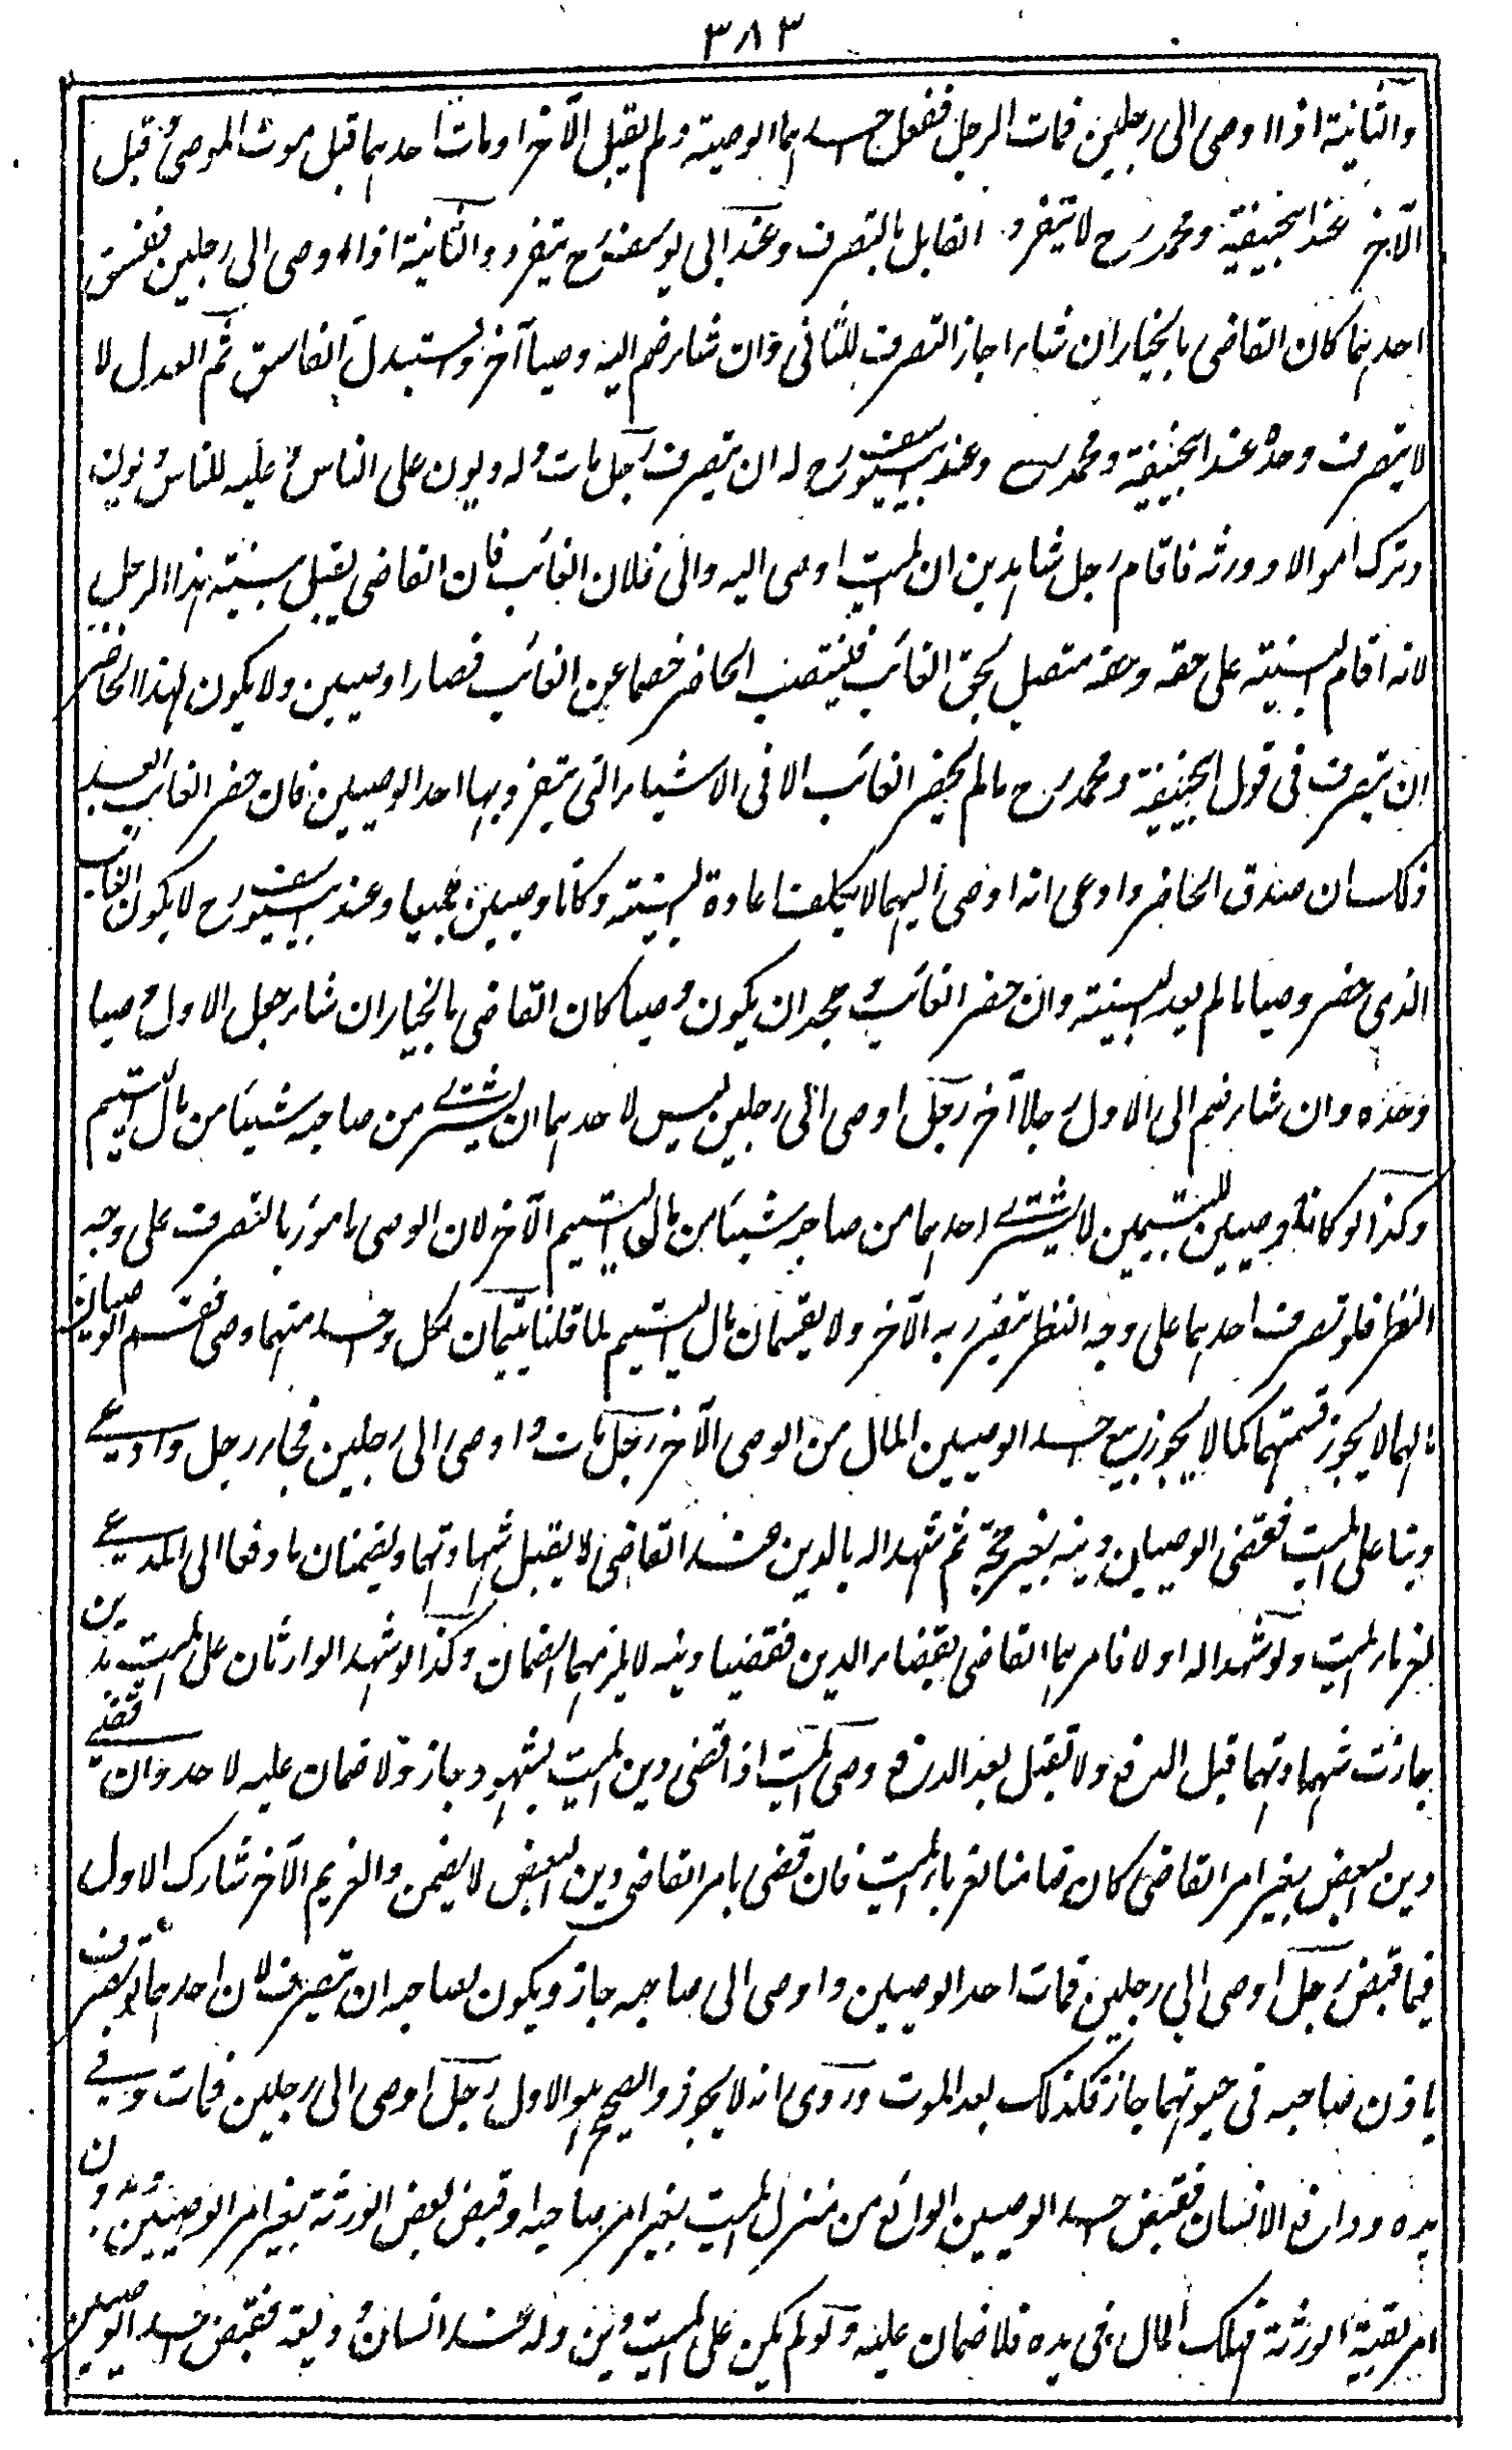 ٣٨٣
والثانية اذا اوصى الى رجلين فمات الرجل فقبل احدهما الوصية ولم يقبل الآخر او مات احدهما قبل موت الموصى وقبل
الآخر عند ابيحنيفة ومحمد رح لا يتفرد القابل بالتصرف وعند ابى يوسف رح يتفرد والثانية اذا اوصى الى رجلين ففسق
احدهما كان القاضى بالخيار ان شاء اجاز التصرف للثانى وان شاء ضم اليه وصيا آخر واستبدل الفاسق ثم العدل لا
لا يتصرف وحده عند ابيحنيفة ومحمد رح وعند ابييوسف رح له ان يتصرف رجل مات وله ديون على الناس وعليه للناس ديون
وترك اموالا وورثة فاقام رجل شاهدين ان الميت اوصى اليه والى فلان الغائب فان القاضى يقبل بينة هذا الرجل
لانه اقام البينة على حقه وحقه متصل بحق الغائب فينتصب الحاضر خصما عن الغائب فصارا وصيين ولا يكون لهذا الحاضر
ان يتصرف فى قول ابيحنيفة ومحمد رح ما لم يحضر الغائب الا فى الاشياء التى يتفرد بها احد الوصيين فان حضر الغائب بعد
ذلك ان صدق الحاضر وادعى انه اوصى اليهما لا يكلف اعادة البينة وكانا وصيين جميعا وعند ابييوسف رح لا يكون الغائب
الذى حضر وصيا ما لم يعد البينة وان حضر الغائب وجحد ان يكون وصيا كان القاضى بالخيار ان شاء جعل الاول وصيا
وحده وان شاء ضم الى الاول رجلا آخر رجل اوصى الى رجلين ليس لاحدهما ان يشترى من صاحبه شيئا من مال اليتيم
وكذا لو كانا وصيين لليتيمين لا يشترى احدهما من صاحبه شيئا من مال اليتيم الآخر لان الوصى مامور بالتصرف على وجه
النظر فلو تصرف احدهما على وجه النظر يتضرر به الآخر ولا يقسمان مال اليتيم لما قلنا يتيمان لكل واحد منهما وصى فقسم الوصيان
مالهما لا يجوز قسمتهما كما لا يجوز بيع احد الوصيين المال من الوصى الآخر رجل مات واوصى الى رجلين فجاء رجل وادعى
دينا على الميت فقضى الوصيان دينه بغير حجة ثم شهدا له بالدين عند القاضى لا يقبل شهادتهما ويضمنان ما دفعا الى المدعى
لغرماء الميت ولو شهدا له اولا فامرهما القاضى بقضاء الدين فقضيا دينه لا يلزمهما الضمان وكذا لو شهد الوارثان على الميت بدين
جازت شهادتهما قبل الدفع ولا تقبل بعد الدفع وصى الميت اذا قضى دين الميت بشهود جاز ولا ضمان عليه لاحد وان قضى
دين البعض بغير امر القاضى كان ضامنا لغرماء الميت فان قضى بامر القاضى دين البعض لا يضمن والغريم الآخر شارك الاول
فيما قبض رجل اوصى الى رجلين فمات احد الوصيين واوصى الى صاحبه جاز ويكون لصاحبه ان يتصرف لان احدهما لو تصرف
باذن صاحبه فى حيوتهما جاز فكذلك بعد الموت وروى انه لا يجوز والصحيح هو الاول رجل اوصى الى رجلين فمات وفى
يده ودائع الانسان فقبض احد الوصيين الودائع من منزل الميت بغير امر صاحبه او قبض بعض الورثة بغير امر الوصيين بدون
امر بقية الورثة فهلك المال فى يده فلا ضمان عليه ولو لم يكن على الميت دين وله عند انسان وديعة فقبض احد الوصيين